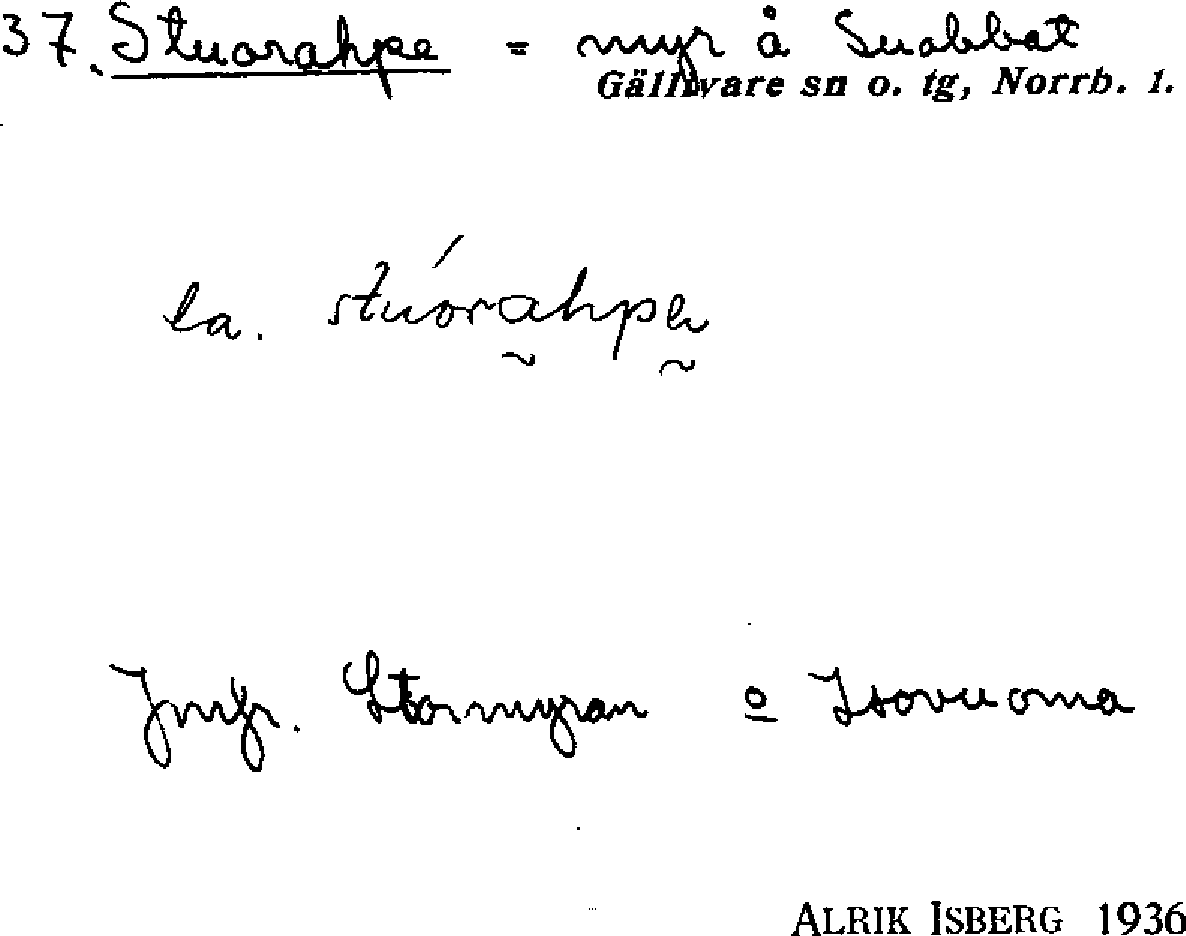 37. Stuorahpe = myr å Suobbat
Gällivare sn o. tg, Norrb. l.
la. stúorahpe
Jmfr. Stormyran o Isovuoma
ALRIK ISBERG 1936